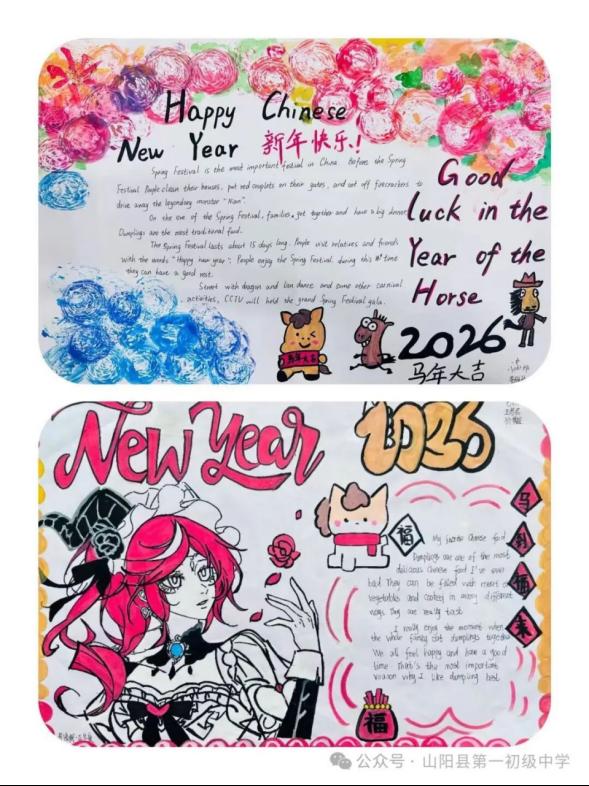 Happy Chinese
New Year 新年快乐!
Spring Festival is the most important festival in China. Before the Spring
Festival People clean their houses, put red couplets on their gates, and set off firecrackers to
drive away the legendary monster "Nian".
On the eve of the Spring Festival, families get together and have a big dinner
Dumplings are the most traditional food.
The Spring Festival lasts about 15 days long. People visit relatives and friends
with the words "Happy new year". People enjoy the Spring Festival. during this time
they can have a good rest.
Street with dragon and lion dance and some other carnival
activities, CCTV will hold the grand Spring Festival gala.
Good
luck in the
Year of the
Horse
2026
马年大吉
马年大吉
New Year 2026
福
马
到
福
来
My favorite Chinese food
Dumplings are one of the most
delicious Chinese food I've ever
had They can be filled with meat or
vegetables and cooked in many different
ways They are really
I really enjoy the moment when
the whole family eat dumplings together
We all feel happy and have a good
time That's the most important
reason why I like dumpling best
福
公众号·山阳县第一初级中学